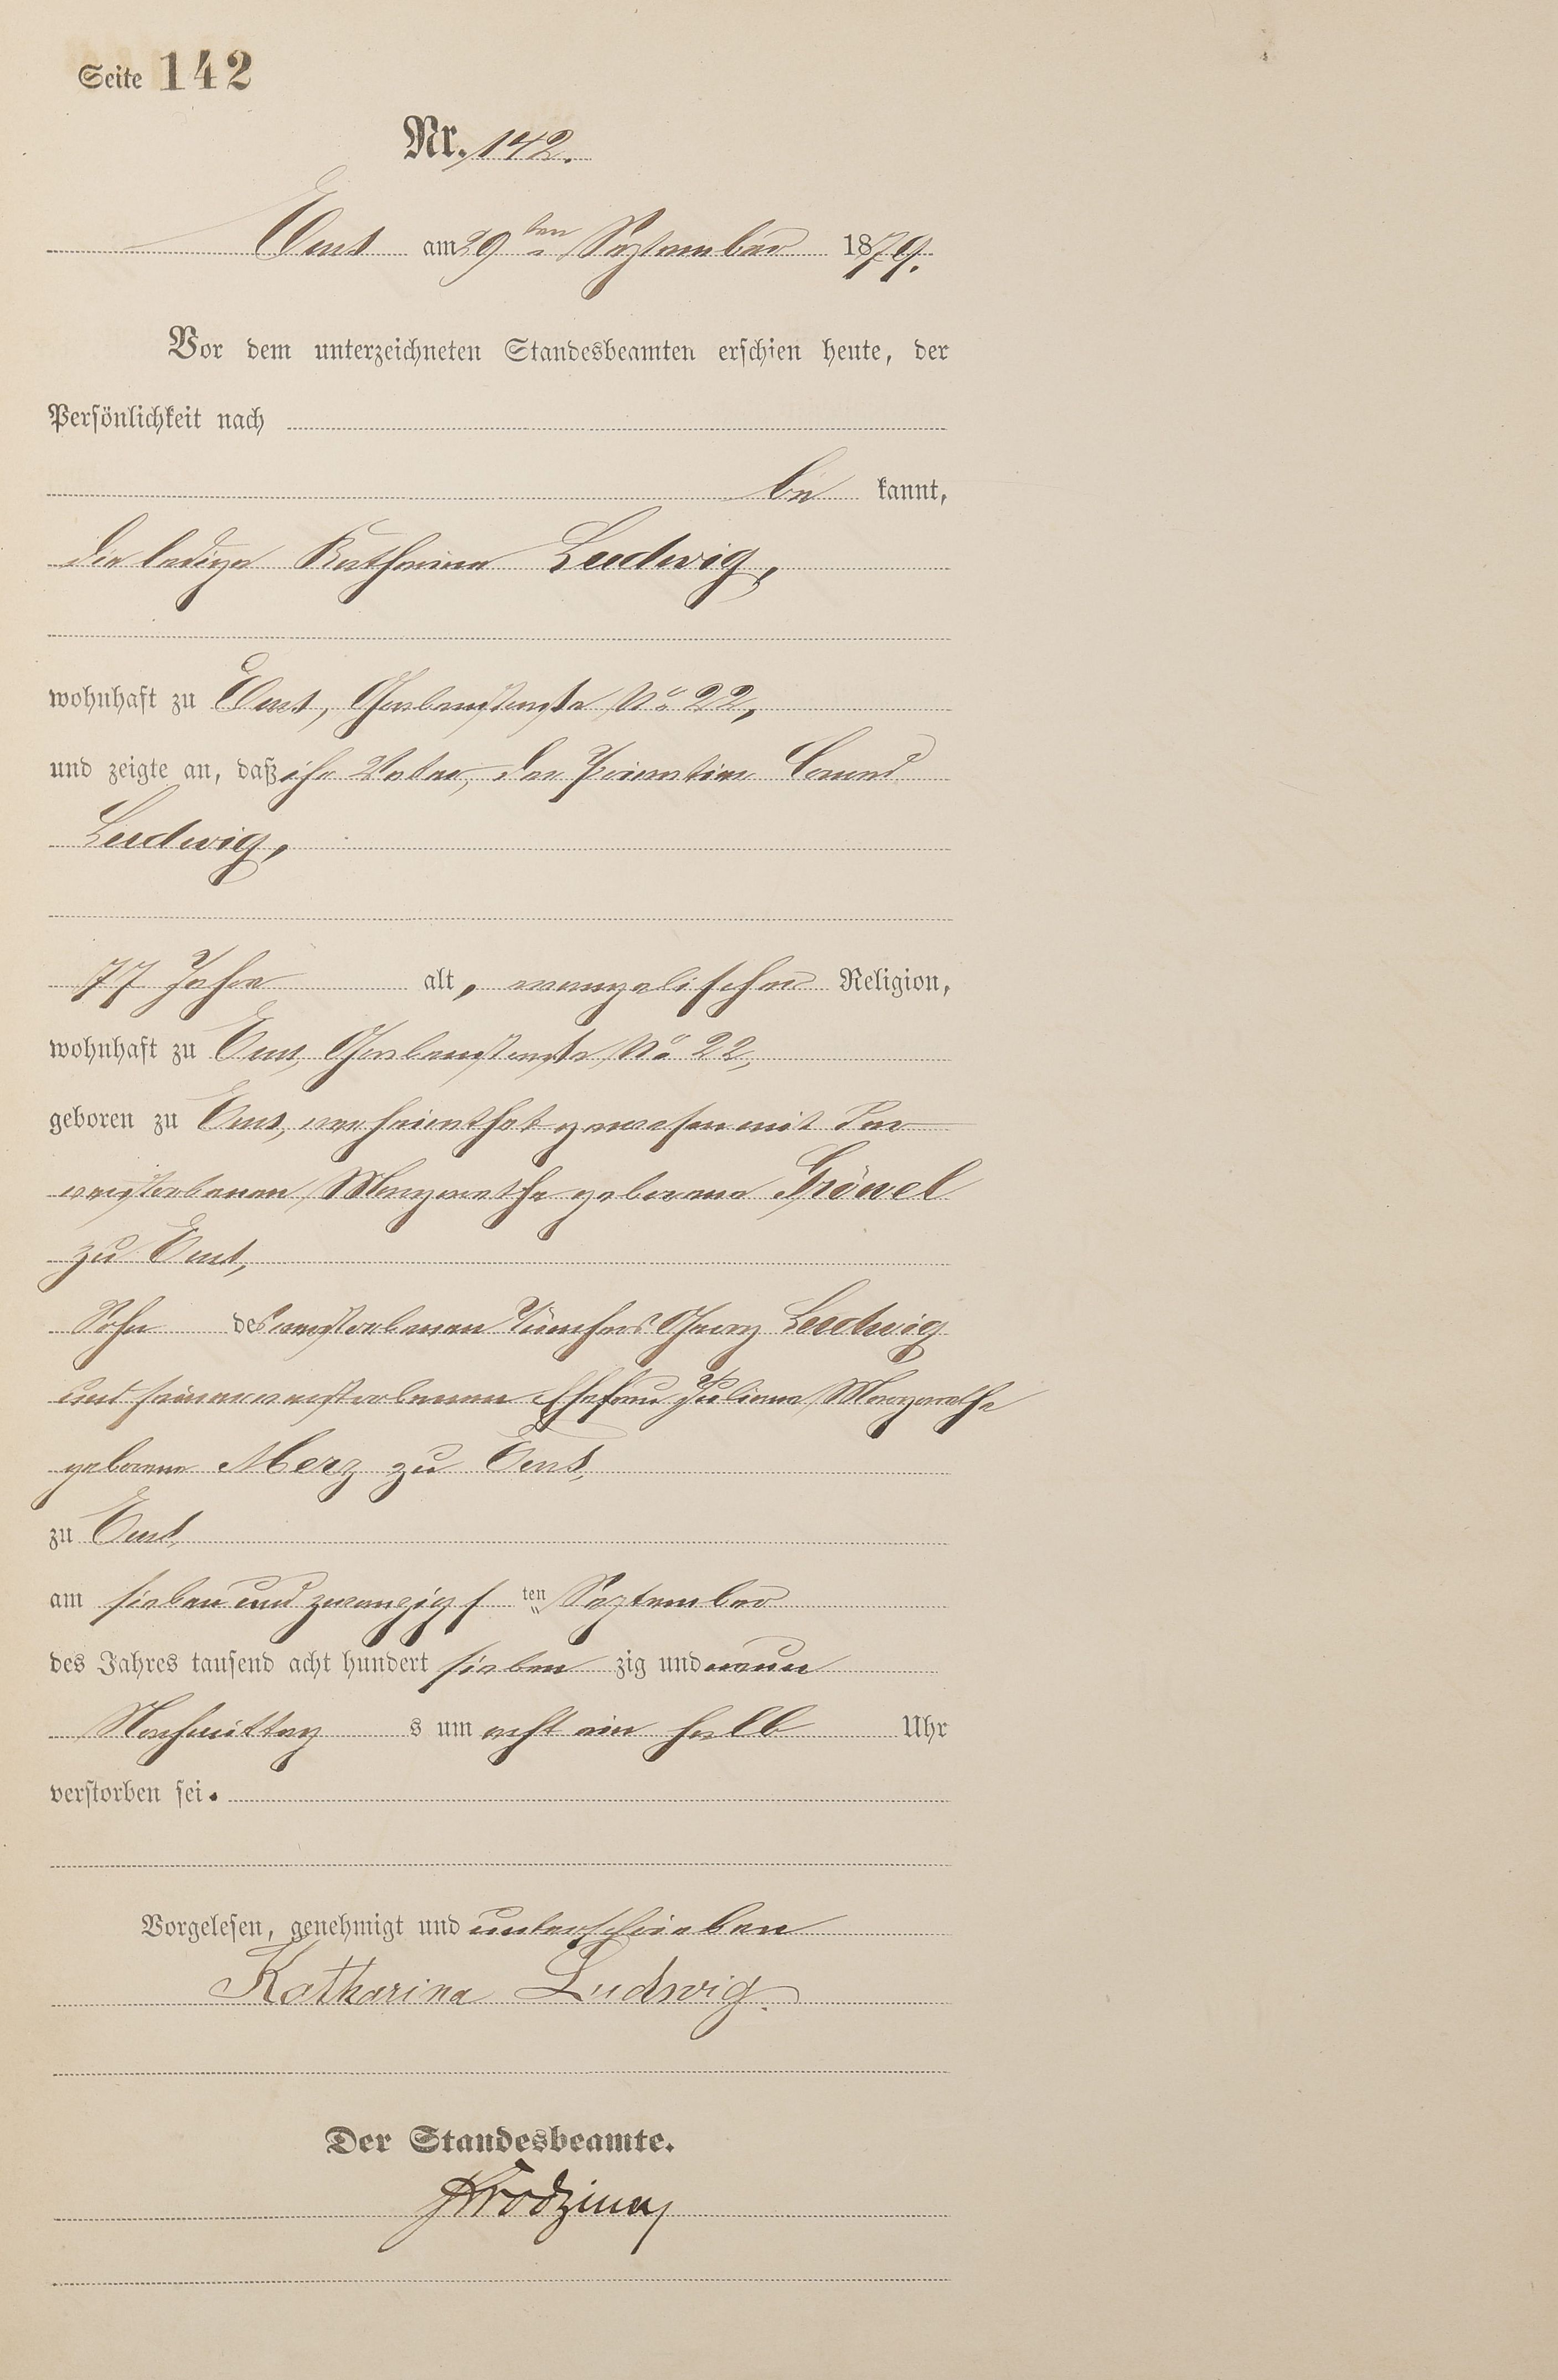 Seite 142
Nr. 142.
Ems am 29ten September 1879.
Vor dem unterzeichneten Standesbeamten erschien heute, der
Persönlichkeit nach
be kannt,
die ledige Katharina Ludwig,
wohnhaft zu Ems, Grabenstraße No 22,
und zeigte an, daß ihr Vater, der Privatier Conrad
Ludwig,
77 Jahre alt, evangelischer Religion,
wohnhaft zu Ems, Grabenstraße No 22,
geboren zu Ems, verheirathet gewesen mit der
verstorbenen Margarethe geborene Gröuel
zu Ems,
Sohn des verstorbenen Tünchers Georg Ludwig
und seiner verstorbenen Ehefrau Juliane Margarethe
geborene Merz zu Ems,
zu Ems,
am sieben und zwanzigs ten September
des Jahres tausend acht hundert sieben zig und neun
Nachmittag s um acht ein halb Uhr
verstorben sei.
Vorgelesen, genehmigt und unterschrieben
Katharina Ludwig.
Der Standesbeamte.